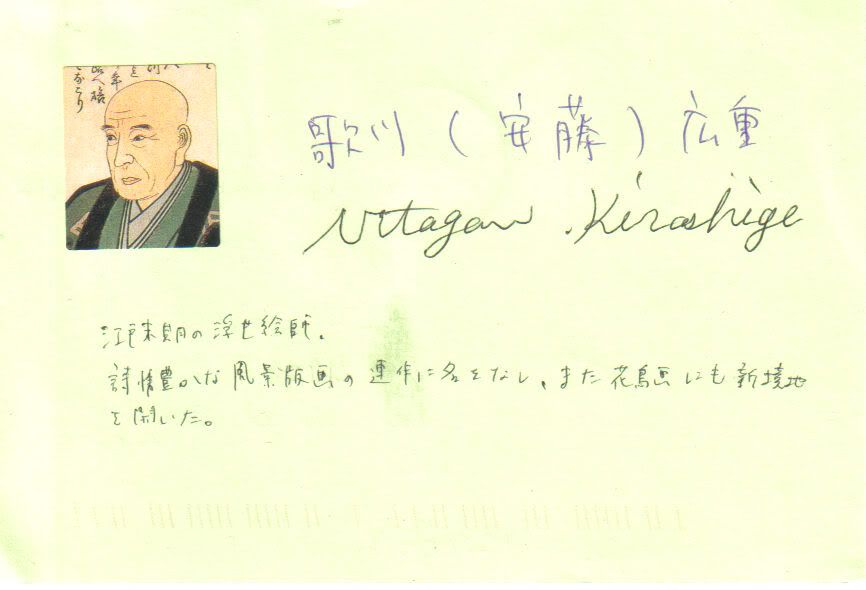 歌川(安藤)広重
Utagawa Hiroshige
江戸末期の浮世絵師。
詩情豊かな風景版画の連作に名をなし、また花鳥画にも新境地
を開いた。